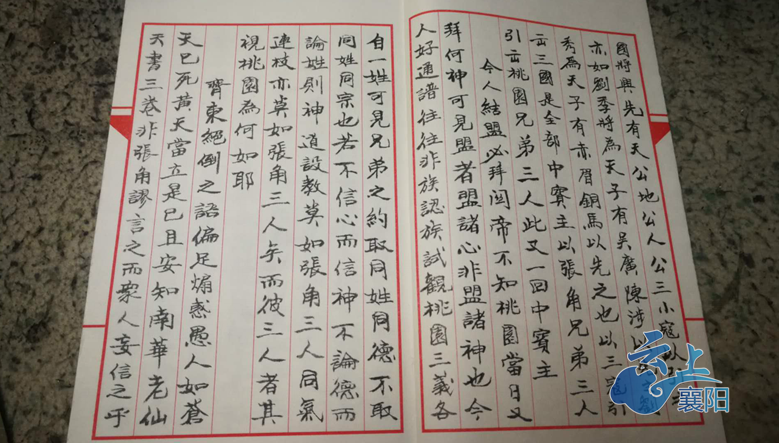 國將興先有天公地公人公三小寇以
亦如劉季將為天子有吳廣陳涉以
秀為天子有赤眉銅馬以先之也以三寇引
出三國是全部中賓主以張角兄弟三人
引出桃園兄弟三人此又一回中賓主
今人結盟必拜關帝不知桃園當日又
拜何神可見盟者盟諸心非盟諸神也今
人好通譜往往非族認族試觀桃園三義各
自一姓可見兄弟之約取同姓同德不取
同姓同宗也若不信心而信神不論德而
論姓則神道設教莫如張角三人同氣
連枝亦莫如張角三人矣而彼三人者其
視桃園為何如耶
齊東絕倒之語偏足煽惑愚人如蒼
天已死黃天當立是已且安知南華老仙
天書三卷非張角謬言之而眾人妄信之乎
云上
襄阳